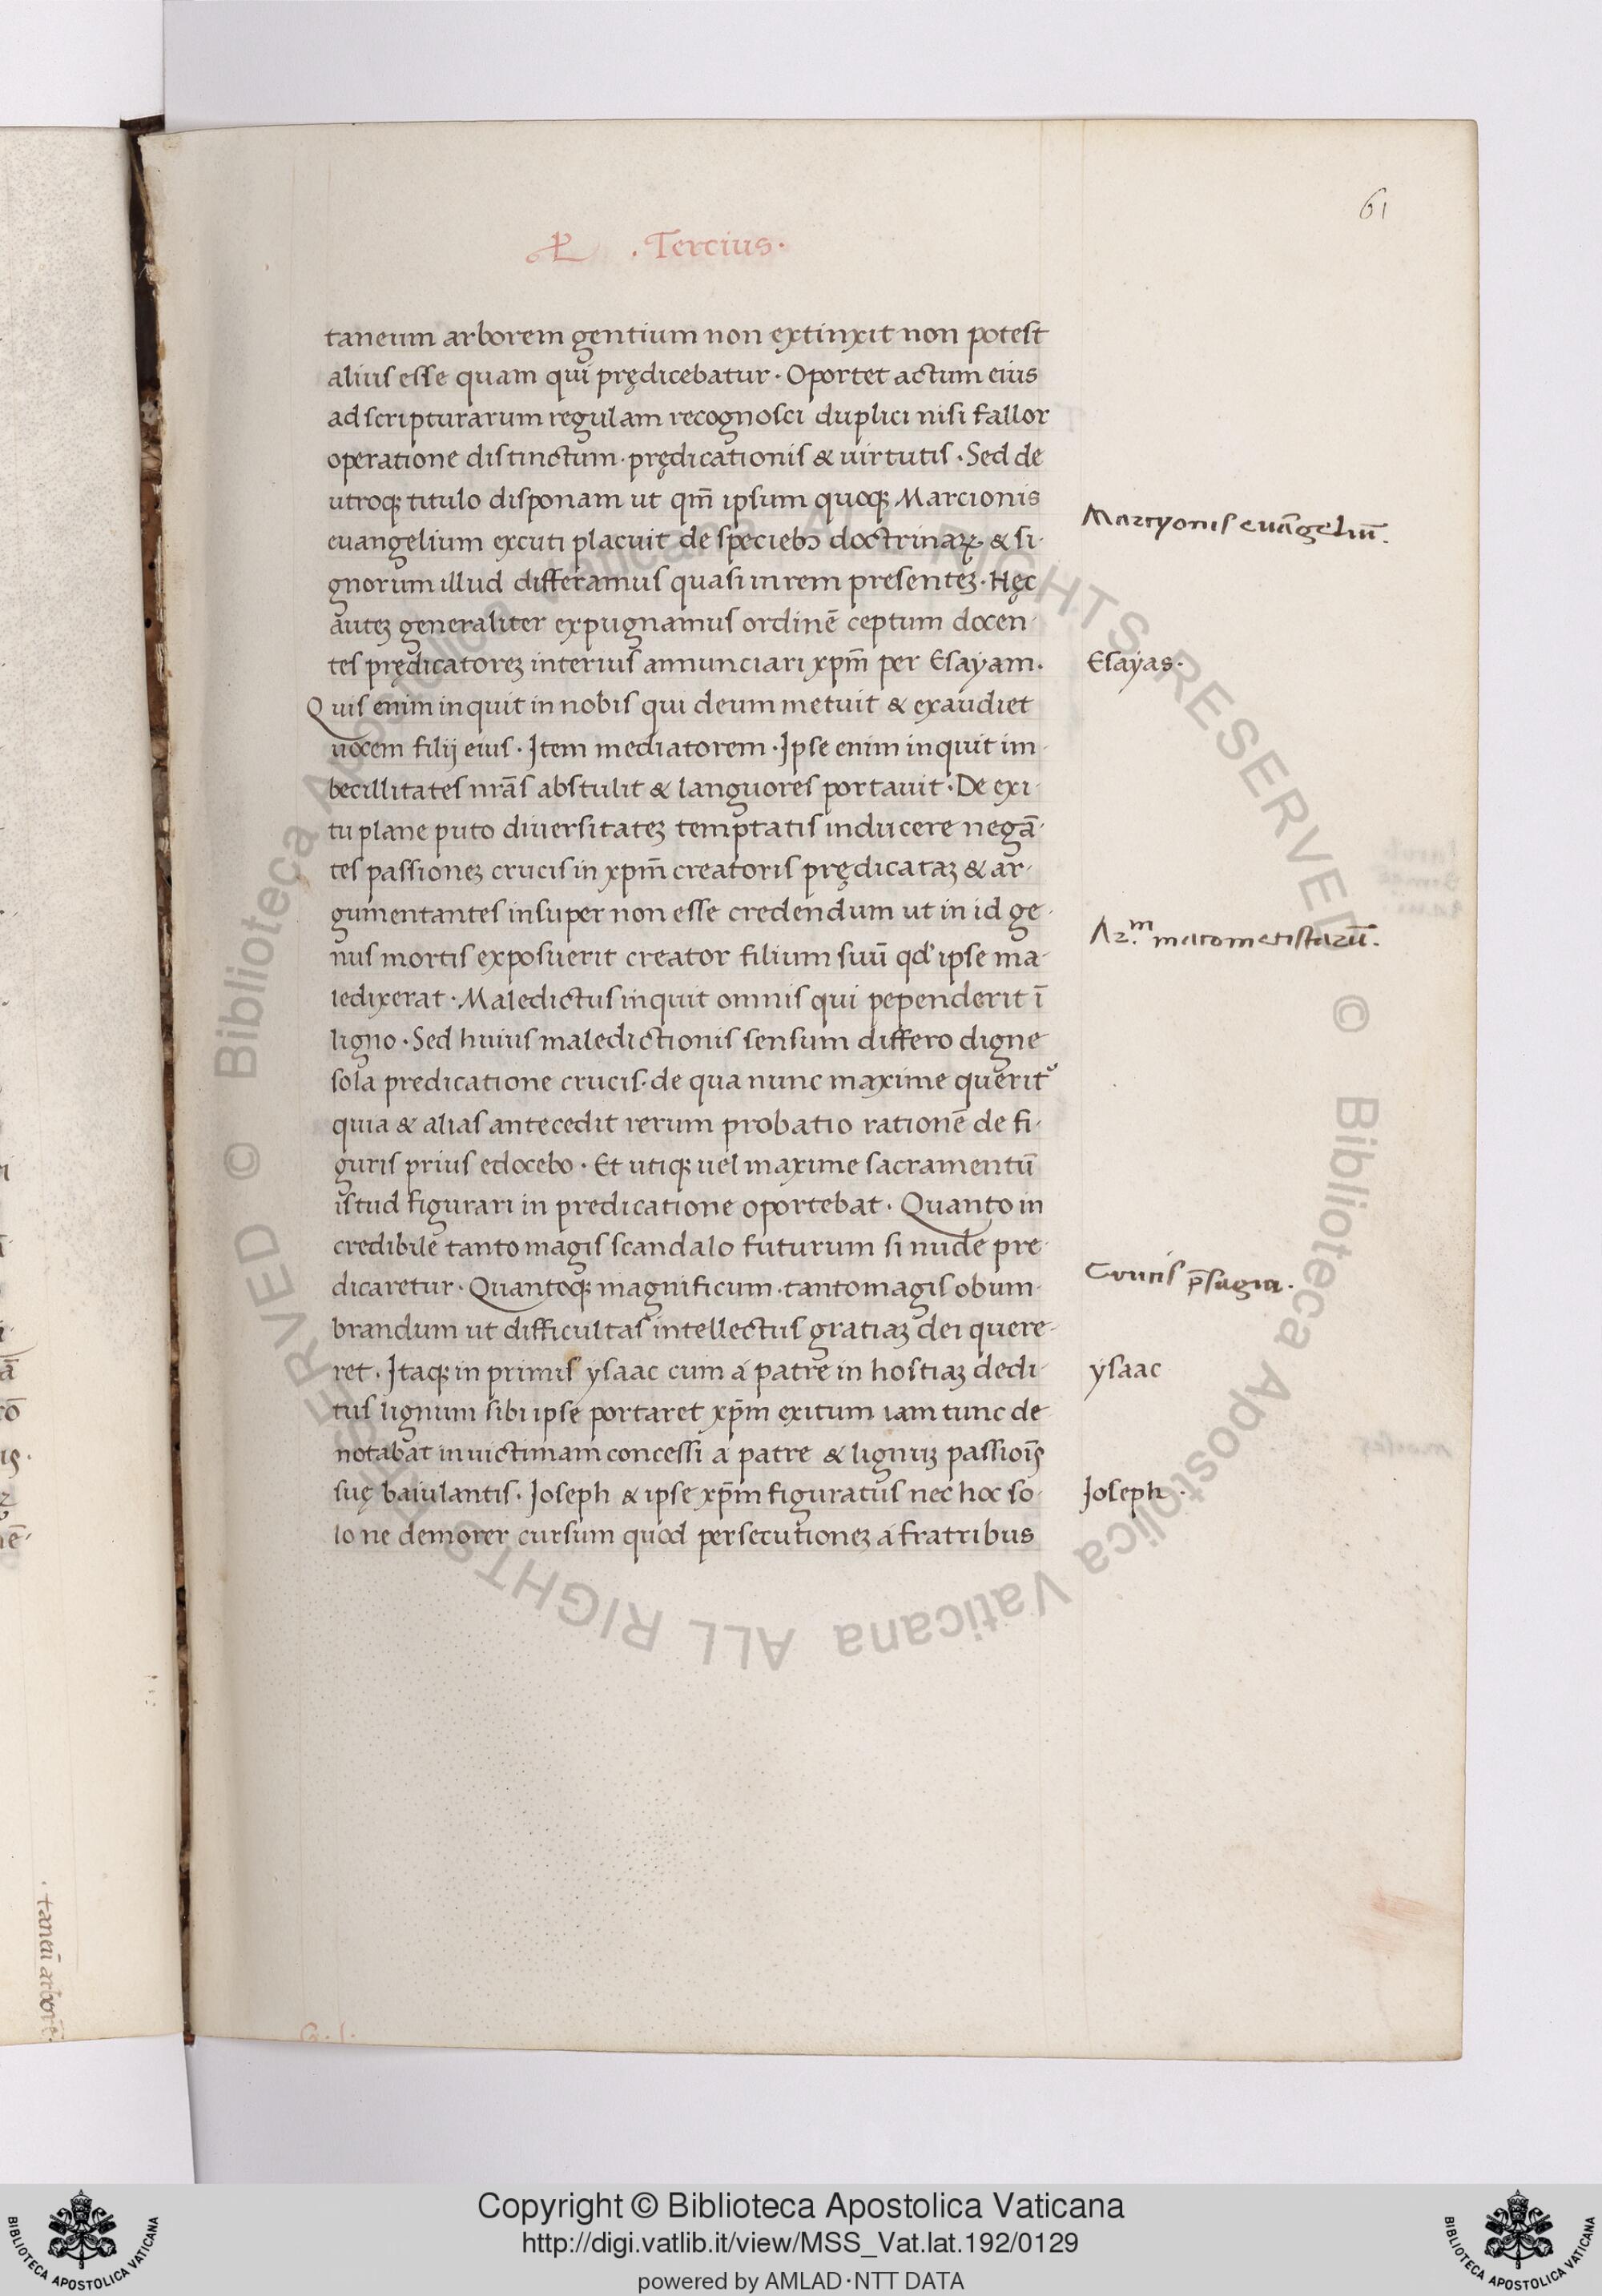 61
. Tercius.
taneum arborem gentium non extinxit non potest
alius esse quam qui prędicebatur. Oportet actum eius
ad scripturarum regulam recognosci duplici nisi fallor
operatione distinctum. prędicationis & uirtutis. Sed de
utroqꝫ titulo disponam ut qm̄ ipsum quoqꝫ Marcionis
Marcyonis euāgeliū.
euangelium excuti placuit de speciebꝫ doctrinaꝝ & si-
gnorum illud differamus quasi in rem presenteꝫ. Hęc
auteꝫ generaliter expugnamus ordinē ceptum docen-
tes prędicatoreꝫ interius annunciari xp̄m per Esayam.
Esayas.
Quis enim inquit in nobis qui deum metuit & exaudiet
uocem filij eius. Item mediatorem. Ipse enim inquit im-
becillitates nr̄as abstulit & languores portauit. De exi-
tu plane puto diuersitateꝫ temptatis inducere negā-
tes passioneꝫ crucis in xp̄m creatoris prędicataꝫ & ar-
gumentantes insuper non esse credendum ut in id ge-
Ar.m marometistarū.
nus mortis exposuerit creator filium suū qd' ipse ma-
ledixerat. Maledictus inquit omnis qui pependerit ī
ligno. Sed huius maledictionis sensum differo digne
sola predicatione crucis. de qua nunc maxime querit᷑
quia & alias antecedit rerum probatio rationē de fi-
guris prius edocebo. Et utiqꝫ uel maxime sacramentū
istud figurari in predicatione oportebat. Quanto in
credibile tanto magis scandalo futurum si nude pre-
dicaretur. Quantoqꝫ magnificum. tanto magis obum-
Crucis p̄sagia.
brandum ut difficultas intellectus gratiaꝫ dei quere-
ret. Itaqꝫ in primis ysaac cum á patre in hostiaꝫ dedi-
ysaac
tus lignum sibi ipse portaret xp̄m exitum iam tunc de
notabat in uictimam concessi a patre & lignuꝫ passiōis
suę baiulantis. Ioseph & ipse xp̄m figuratus nec hoc so-
Ioseph.
lo ne demorer cursum quod persecutioneꝫ á fratribus
. taneū arborē.
Copyright © Biblioteca Apostolica Vaticana
http://digi.vatlib.it/view/MSS_Vat.lat.192/0129
powered by AMLAD·NTT DATA
BIBLIOTECA APOSTOLICA VATICANA
BIBLIOTECA APOSTOLICA VATICANA
© Biblioteca Apostolica Vaticana ALL RIGHTS RESERVED
© Biblioteca Apostolica Vaticana ALL RIGHTS RESERVED